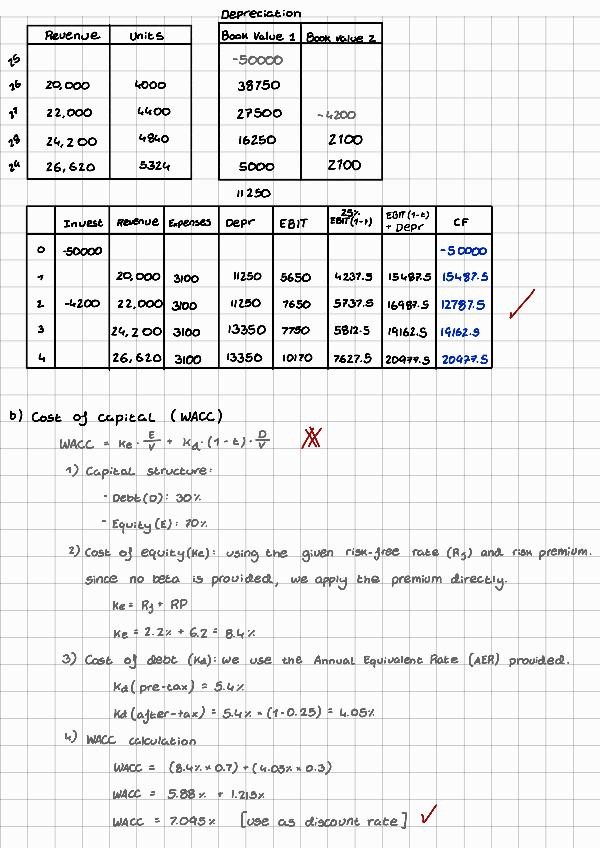 Depreciation
Revenue Units Book Value 1 Book Value 2
25 -50000
26 20,000 4000 38750
27 22,000 4400 27500 -4200
28 24,200 4840 16250 2100
29 26,620 5324 5000 2100
11250
Invest Revenue Expenses Depr EBIT 25% EBIT(1-t) EBIT(1-t) + Depr CF
0 -50000 -50000
1 20,000 3100 11250 5650 4237.5 15487.5 15487.5
2 -4200 22,000 3100 11250 7650 5737.5 16987.5 12787.5
3 24,200 3100 13350 7750 5812.5 19162.5 19162.5
4 26,620 3100 13350 10170 7627.5 20977.5 20977.5
b) Cost of capital (WACC)
WACC = Ke · E/V + Kd · (1-t) · D/V
1) Capital structure:
- Debt (D): 30%
- Equity (E): 70%
2) Cost of equity (Ke): using the given risk-free rate (Rf) and risk premium.
since no beta is provided, we apply the premium directly.
Ke = Rf + RP
Ke = 2.2% + 6.2 = 8.4%
3) Cost of debt (Kd): we use the Annual Equivalent Rate (AER) provided.
Kd (pre-tax) = 5.4%
Kd (after-tax) = 5.4% × (1-0.25) = 4.05%
4) WACC calculation
WACC = (8.4% × 0.7) + (4.05% × 0.3)
WACC = 5.88% + 1.215%
WACC = 7.095% [use as discount rate]